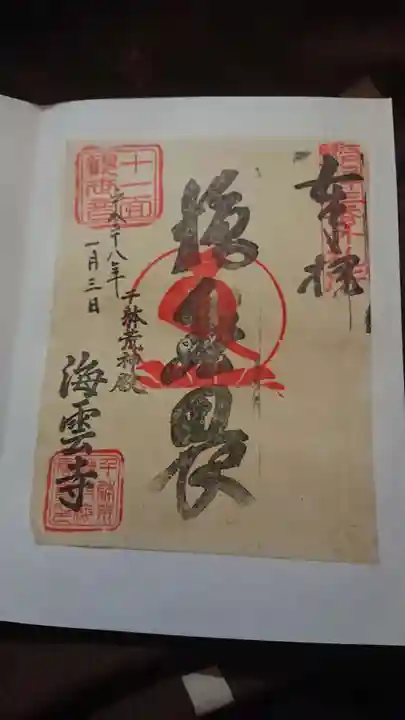 奉拝
施無畏
十一面
観世音
平成二十八年
一月三日
千躰荒神殿
海雲寺